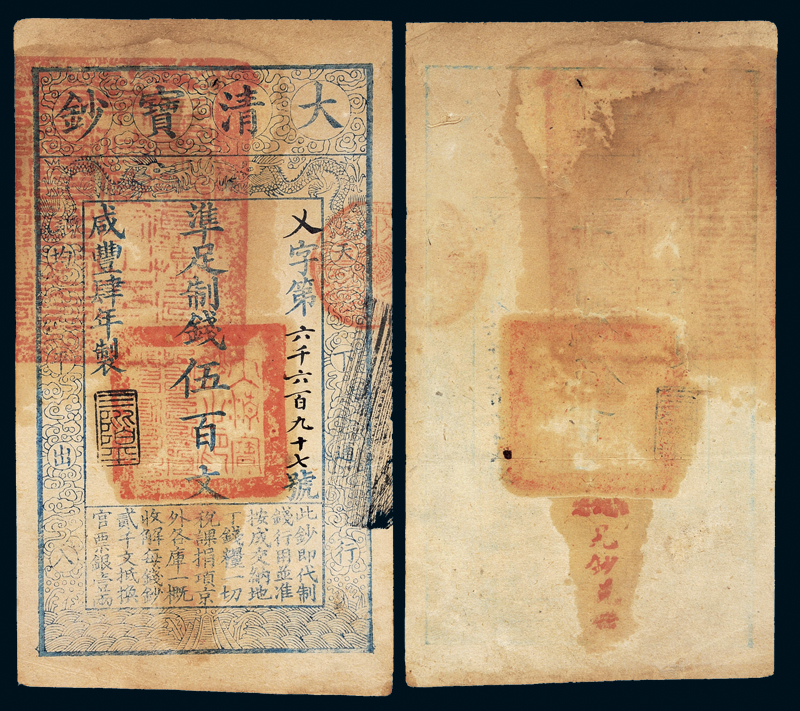 大清寶鈔
天下通行
均平出入
乂字第六千六百九十七號
準足制錢伍百文
咸豐肆年製
此鈔即代制
錢行用並准
按成交納地
丁錢糧一切
稅課捐項京
外各庫一概
收解每錢鈔
貳千文抵換
官票銀壹兩
兌鈔